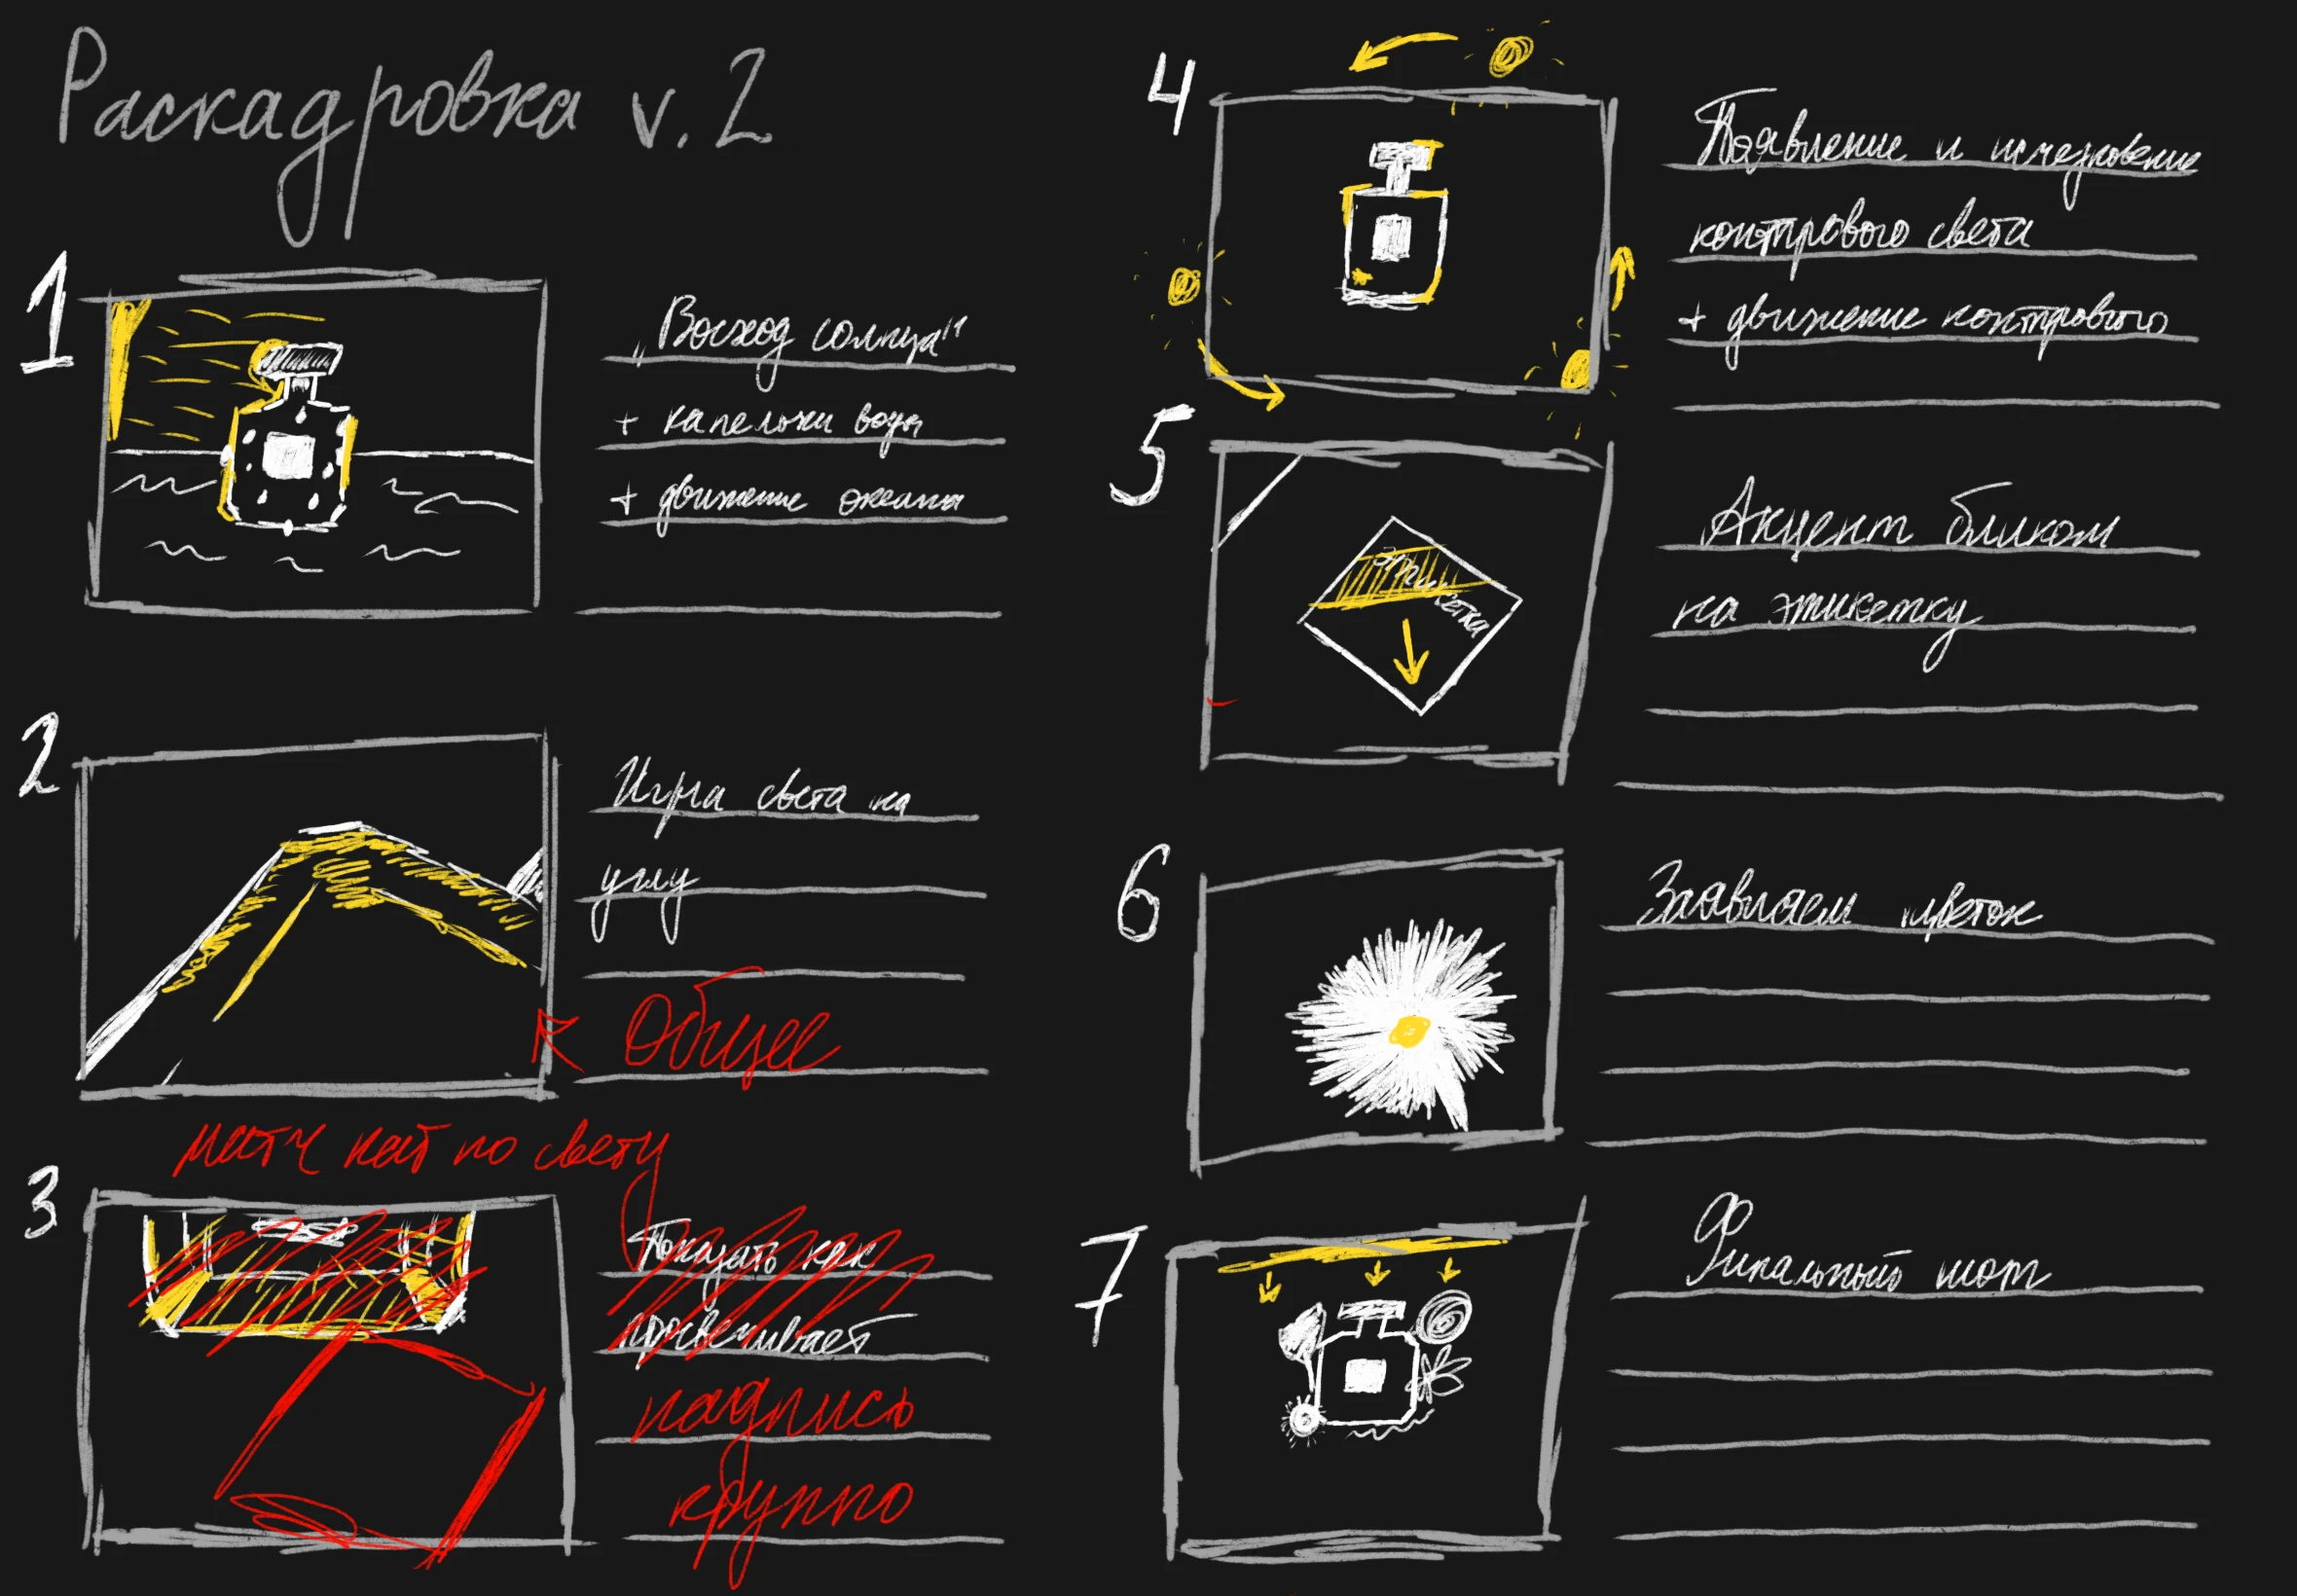 Раскадровка v. 2
1
„Восход солнца"
+ капельки воды
+ движение океана
2
Игра света на
углу
Общее
матч кат по свету
3
Показать как
просвечивает
надпись
крупно
4
Появление и исчезновение
контрового света
+ движение контрового
5
этикетка
Акцент бликом
на этикетку
6
Заявляем цветок
7
Финальный шот